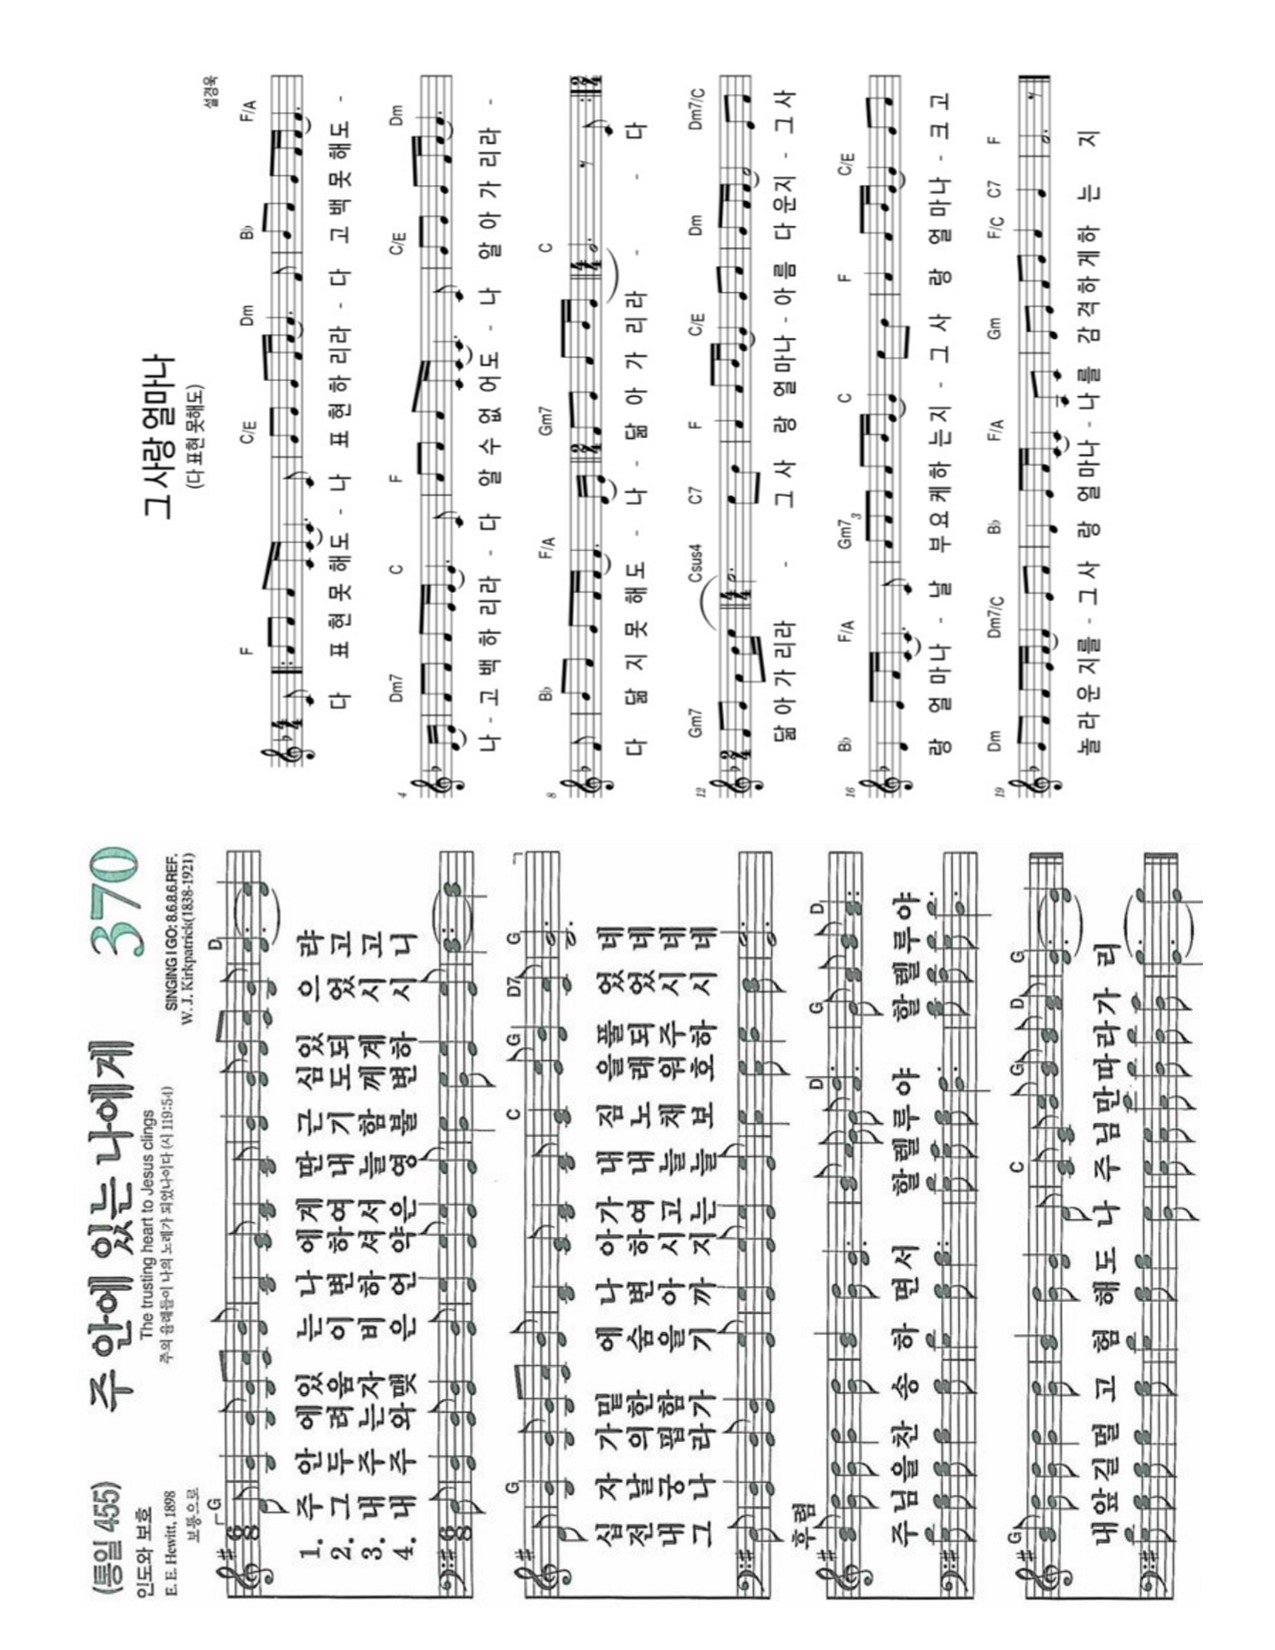 (통일 455)
주 안에 있는 나에게
370
인도와 보호
The trusting heart to Jesus clings
E. E. Hewitt, 1898
주의 율례들이 나의 노래가 되었나이다 (시 119:54)
SINGING I GO: 8.6.8.6.REF.
보통으로
W. J. Kirkpatrick(1838-1921)
G D
1. 주 안 에 있 는 나 에 게 딴 근 심 있 으 랴
2. 그 두 려 움 이 변 하 여 내 기 도 되 었 고
3. 내 주 는 자 비 하 셔 서 늘 함 께 계 시 고
4. 내 주 와 맺 은 언 약 은 영 불 변 하 시 니
G C G D7 G
십 자 가 밑 에 나 아 가 내 짐 을 풀 었 네
전 날 의 한 숨 변 하 여 내 노 래 되 었 네
내 궁 핍 함 을 아 시 고 늘 채 워 주 시 네
그 나 라 가 기 까 지 는 늘 보 호 하 시 네
후렴
D G D
주 님 을 찬 송 하 면 서 할 렐 루 야 할 렐 루 야
G C G G D G
내 앞 길 멀 고 험 해 도 나 주 님 만 따 라 가 리
그 사랑 얼마나
(다 표현 못해도)
설경욱
F C/E Dm B♭ F/A
다 표 현 못 해도 - 나 표 현 하 리라 - 다 고 백 못 해도 -
4
Dm7 C F C/E Dm
나 - 고 백 하 리라 - 다 알 수 없 어도 - 나 알 아 가 리라 -
8
B♭ F/A Gm7 C
다 닮 지 못 해도 - 나 - 닮 아 가 리 라 - - - 다
12
Gm7 Csus4 C7 F C/E Dm Dm7/C
닮 아 가 리라 - 그 사 랑 얼 마나 - 아 름 다 운지 - 그 사
16
B♭ F/A Gm7 C F C/E
랑 얼 마나 - 날 부 요 케 하 는지 - 그 사 랑 얼 마나 - 크 고
19
Dm Dm7/C B♭ F/A Gm F/C C7 F
놀 라 운 지를 - 그 사 랑 얼 마나 - 나 를 감 격 하 게 하 는 지